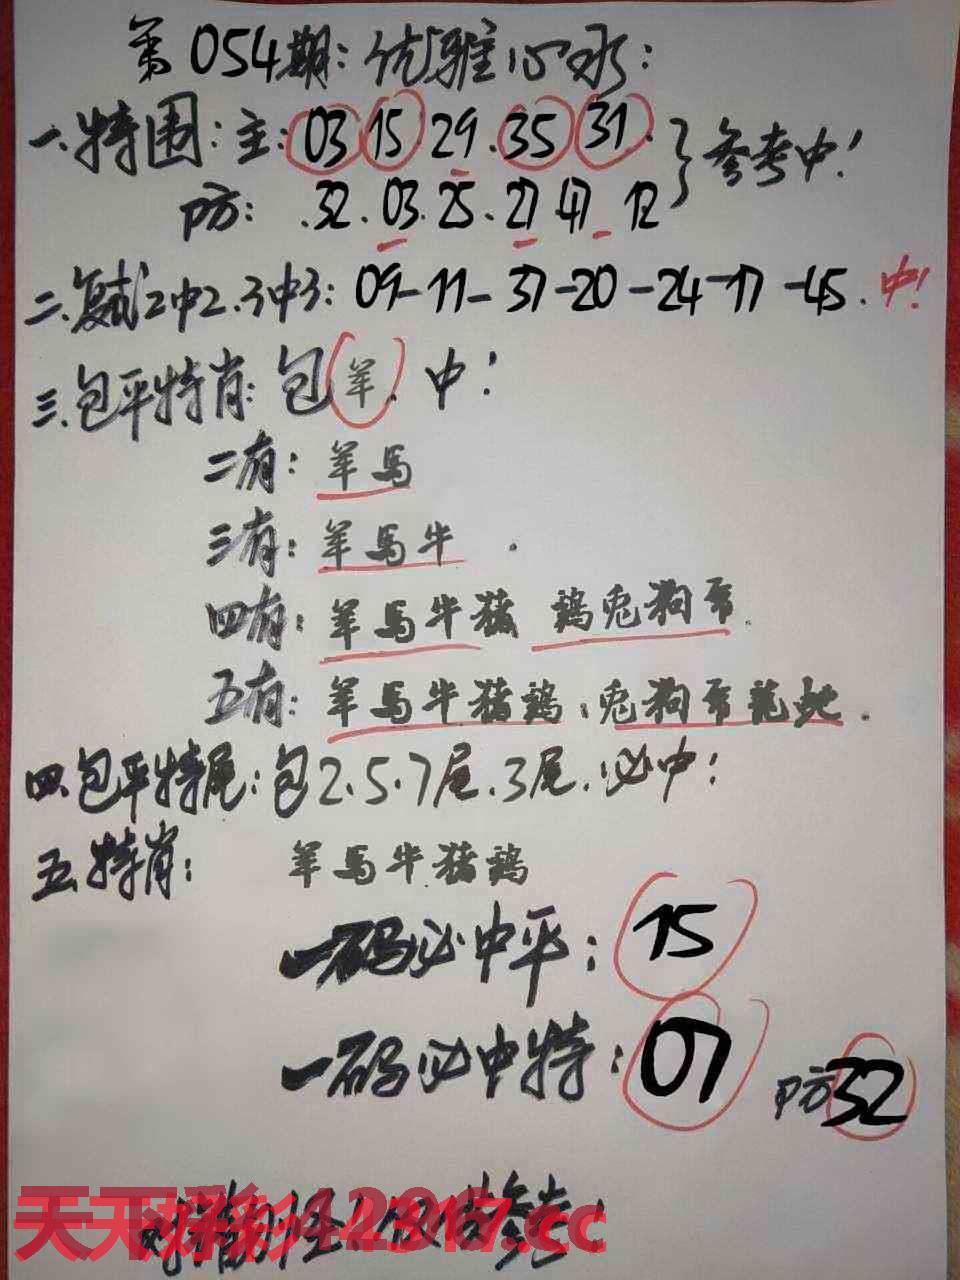 第054期：优雅心水：
一.特围：主：03 15 29.35 31. 参考中！
防：.32.03.25.27 47 12
二.复试2中2.3中3：09-11-37-20-24-17-45.中！
三.包平特肖：包羊.中！
二有：羊马
三有：羊马牛.
四有：羊马牛猪 鸡兔狗
五有：羊马牛猪鸡.兔狗 龍蛇.
四.包平特尾：包2.5.7尾.3尾.必中！
五.特肖： 羊马牛猪鸡
一码必中平：15
一码必中特：07 防32
天下彩 12317.cc